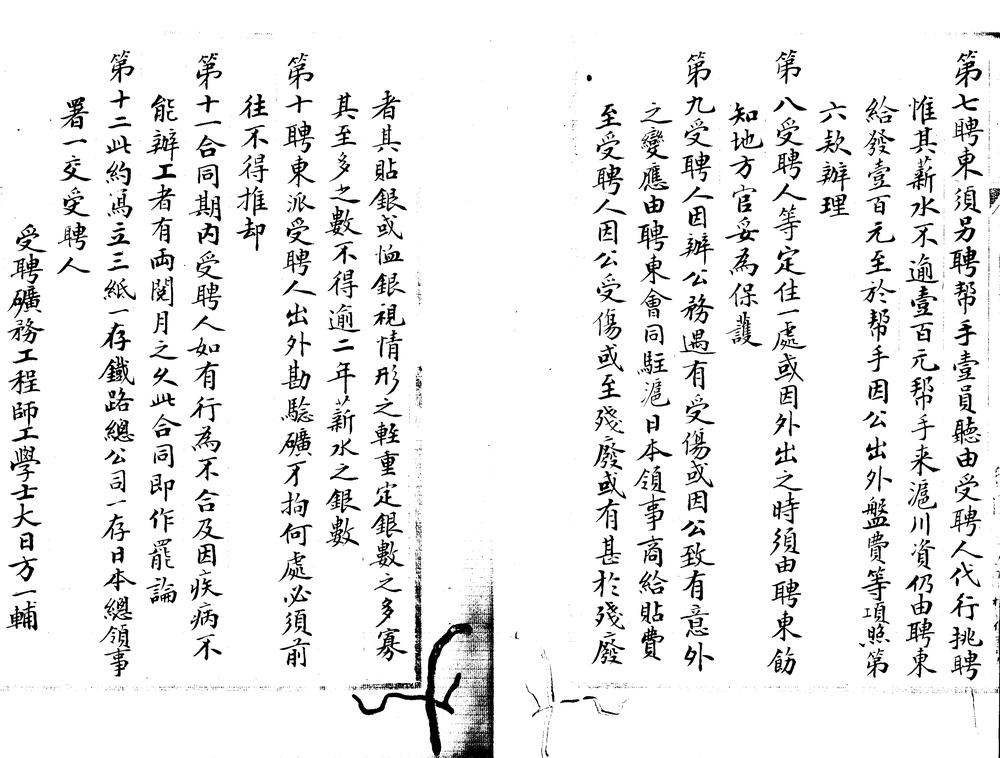 第七聘東須另聘帮手壹員聽由受聘人代行挑聘
惟其薪水不逾壹百元帮手来滬川資仍由聘東
給發壹百元至於帮手因公出外盤費等項照第
六款辦理
第八受聘人等定住一處或因外出之時須由聘東飭
知地方官妥為保護
第九受聘人因辦公務遇有受傷或因公致有意外
之變應由聘東會同駐滬日本領事商給貼費
至受聘人因公受傷或至殘廢或有甚於殘廢
者其貼銀或恤銀視情形之輕重定銀數之多寡
其至多之數不得逾二年薪水之銀數
第十聘東派受聘人出外勘驗礦務不拘何處必須前
往不得推却
第十一合同期内受聘人如有行為不合及因疾病不
能辦工者有両閱月之久此合同即作罷論
第十二此約寫立三紙一存鐵路總公司一存日本總領事
署一交受聘人
受聘礦務工程師工學士大日方一輔